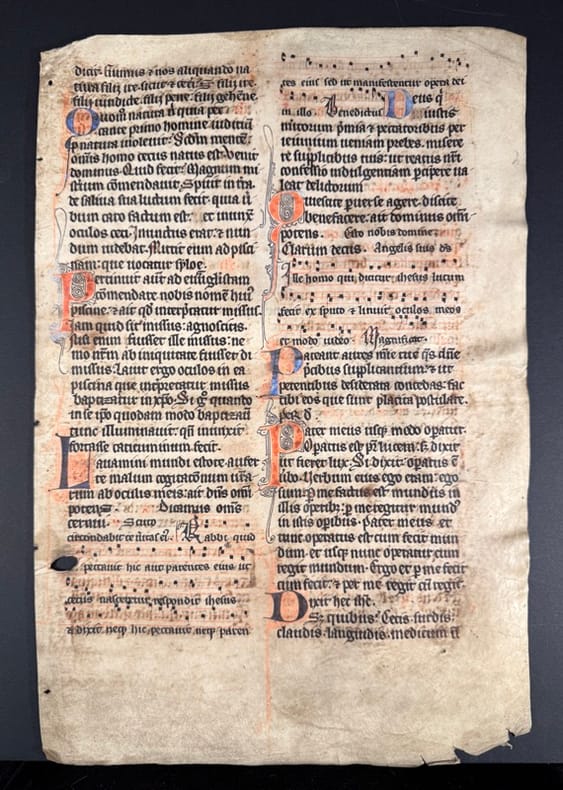 dicit firmus & nos aliquando na
tura filii ire. sicut & ceteri. filii ire.
filii vindicte. filii pene. filii gehenne.
Quom natura nisi quia per
cante primo homine
natura inolevit.
omnis homo cecus natus est. venit
dominus. Quid fecit. Magnum mi
sterium comendavit. Spuit in tra
de saliva sua lutum fecit. quia v
bum caro factum est. et inunxit
oculos ceci. Inunctus erat. & non
dum videbat. Mittit eum ad pisci
nam. que vocatur syloe.
Pertinuit aut ad euangelistam
comendare nobis nome huius
piscine. & ait qd interpretatur missus.
iam quid sit missus. agnoscitis.
Nisi enim fuisset ille missus. ne
mo nrm ab iniquitate fuisset di
missus. Lavit ergo oculos in ea
piscina que interpretatur missus
baptizatus in xpo. Si go quando
in se ipo quodam modo baptizavit
tunc illuminavit. qn inunxit
fortasse caticuminum fecit.
Lavamini mundi estote. aufer
te malum cogitationum vra
rum ab oculis meis. ait dns omi
potens. Dicamus omnes
Scuto
circundabit te veritas ei. Rabbi quid
peccavit hic aut parentes eius ut
cecus nasceretur. respondit ihesus
& dixit. neq hic peccavit neq paren
tes eius sed ut manifestentur opera dei
in illo. Benedictus Deus q
iustis
meritorum pmia & peccatoribus per
ieiunium veniam prebes. misere
re supplicibus tuis. ut reatus nri
confessio indulgentiam pcipere va
leat delictorum.
Quiescite pverse agere. discite
benefacere. ait dominus omi
potens. Esto nobis domine
Clarum decus. Angelis suis ds
Ille homo qui dicitur ihesus lutum
fecit ex sputo & linivit oculos meos
et modo video. Magnificat.
Pateant aures mie tue qs dne
pcibus supplicantium. & ut
petentibus desiderata concedas. fac
eos que sunt placita postulare.
Pater meus usq modo operatur.
Operatus est pr lucem. s dixit
ut fieret lux. Si dixit operatus e
vbo. Verbum eius ego eram. ego
sum. p me factus est mundus in
illis operib. p me regitur mund
in istis operibus. pater meus et
tunc operatus est cum fecit mun
dum. et usq nunc operatur cum
regit mundum. Ergo et p me fecit
cum fecit. & per me regit cu regit.
Dixit hec ihc
Ds. quibus. Cecis surdis.
claudis. languidis. medicinam